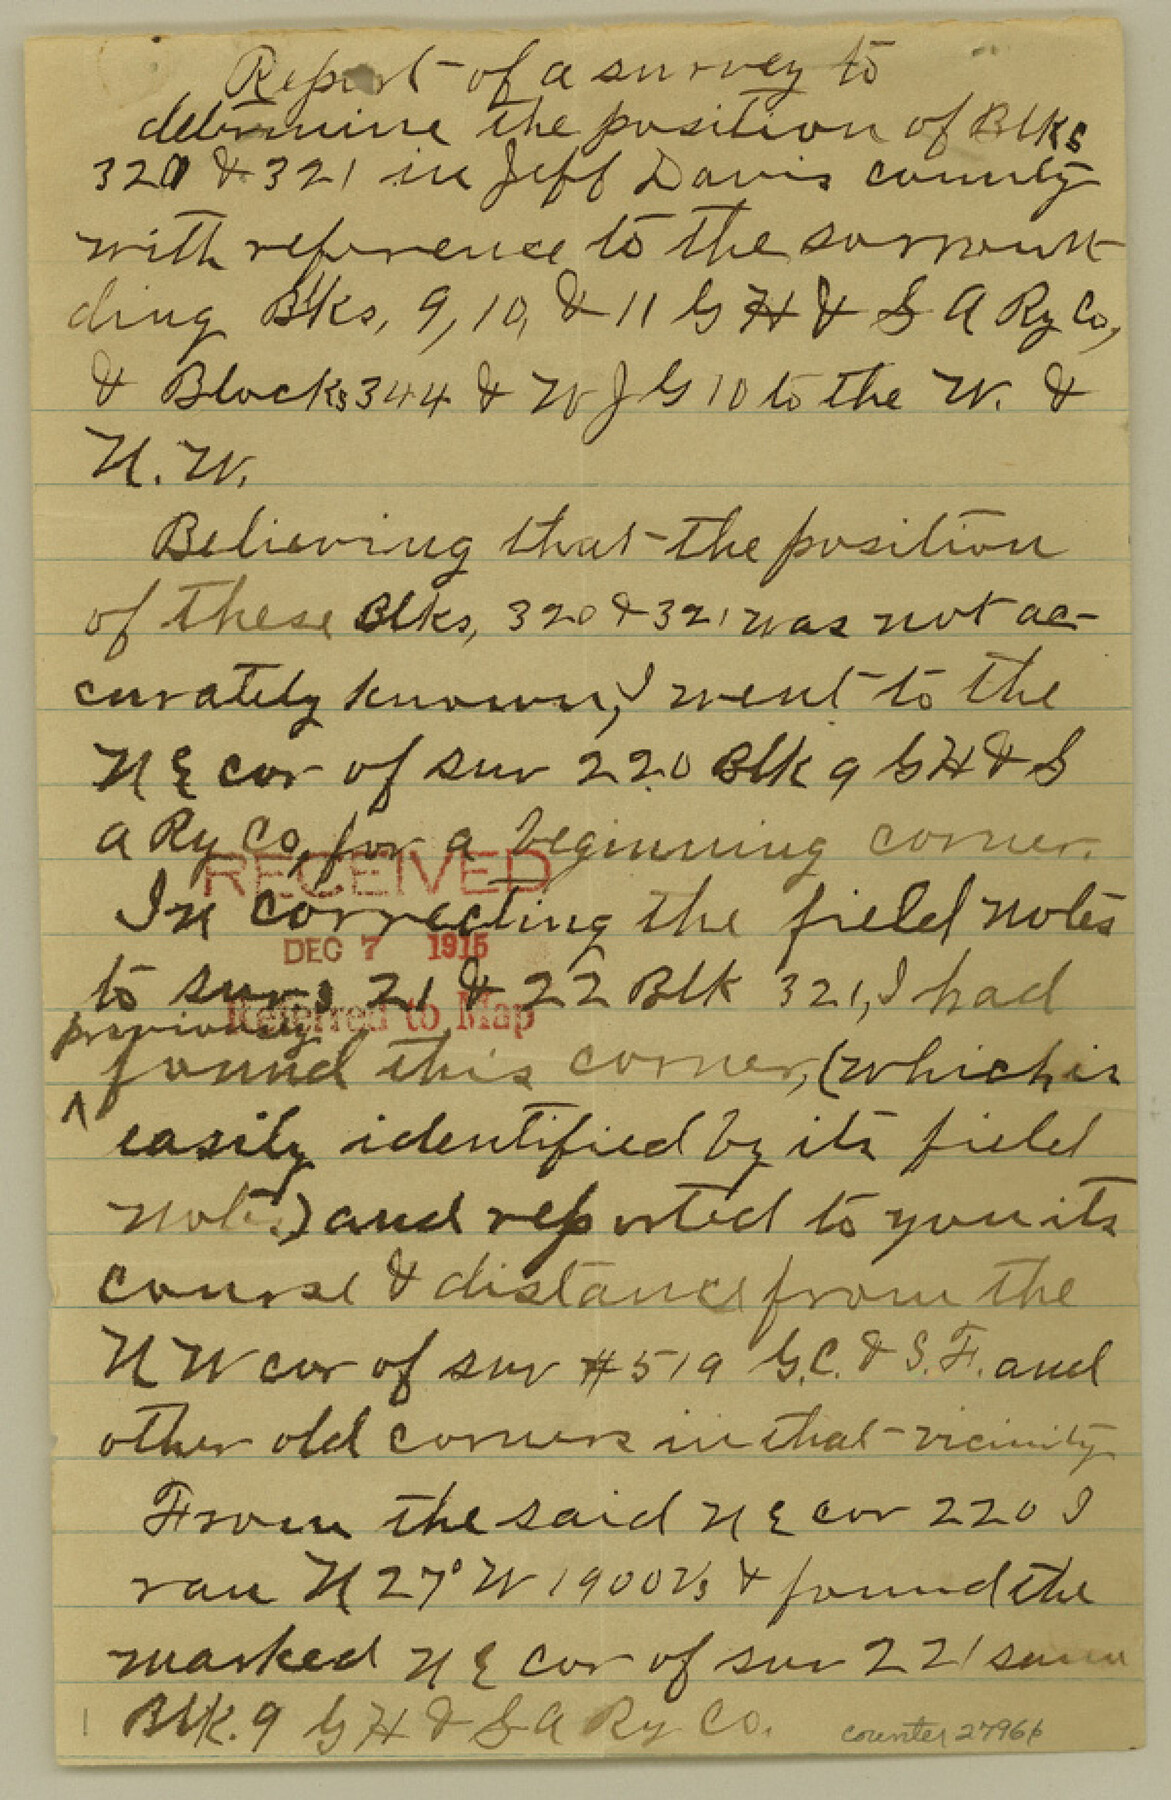 Report of a survey to
determine the position of Blks
320 & 321 in Jeff Davis county
with reference to the surroun-
ding Blks, 9, 10, & 11 G H & S A Ry Co,
& Blocks 344 & W J G 10 to the W. &
N. W.
Believing that the position
of these Blks, 320 & 321 was not ac-
curately known, I went to the
N E cor of sur 220 Blk 9 G H & S
A Ry Co, for a beginning corner.
RECEIVED
In correcting the field notes
DEC 7 1915
to surs 21 & 22 Blk 321, I had
Referred to Map
previously
^ found this corner, (which is
easily identified by its field
notes) and reported to you its
course & distance from the
N W cor of sur #519 G.C. & S.F. and
other old corners in that vicinity
From the said N E cor 220 I
ran N 27° W 1900 Vs & found the
marked N E cor of sur 221 same
1 Blk. 9 G H & S A Ry Co.
counter 27966